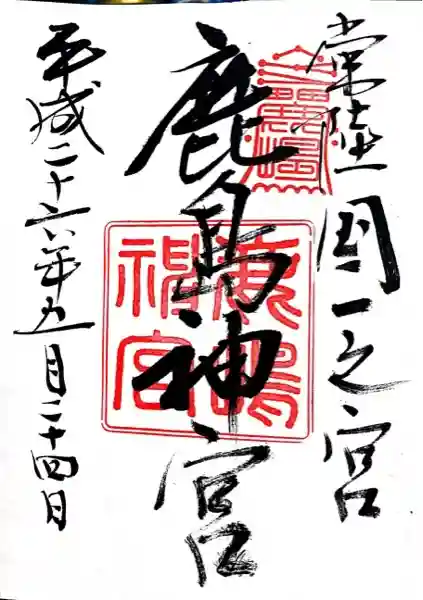 常陸国一之宮
鹿島神宮
鹿嶋神宮
平成二十六年五月二十四日